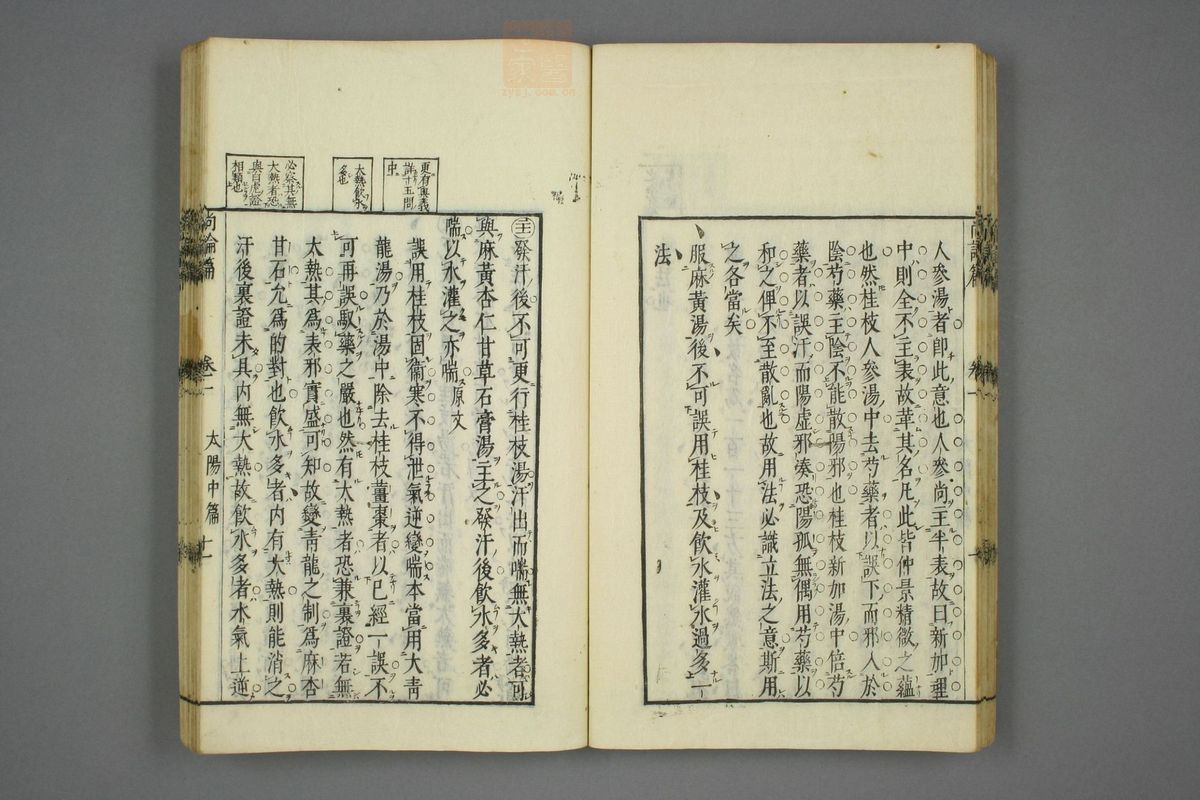 人參湯者卽此意也人參尚主半表故曰新加理
中則全不主表故革其名凡此皆仲景精微之蘊
也然桂枝人參湯中去芍藥者以誤下而邪入於
陰芍藥主陰不能散陽邪也桂枝新加湯中倍芍
藥者以誤汗而陽虛邪湊恐陽孤無偶用芍藥以
和之俾不至散亂也故用法必識立法之意斯用
之各當矣
服麻黃湯後不可誤用桂枝及飲水灌水過多一
法
更有奧義
詳十五問
中
太熱飲水
多也
必察其無
大熱者恐
與白虎證
相類也
發汗後不可更行桂枝湯汗出而喘無大熱者可
與麻黃杏仁甘草石膏湯主之發汗後飲水多者必
喘以水灌之亦喘原文
誤用桂枝固衞寒不得泄氣逆變喘本當用大青
龍湯乃於湯中除去桂枝薑棗者以已經一誤不
可再誤馭藥之嚴也然有大熱者恐兼裏證若無
太熱其為表邪實盛可知故變青龍之制為麻杏
甘石允為的對也飲水多者內有大熱則能消之
汗後裏證未具內無大熱故飲水多者水氣上逆
尚論篇 卷一 太陽中篇 十一
家醫
zysj.com.cn